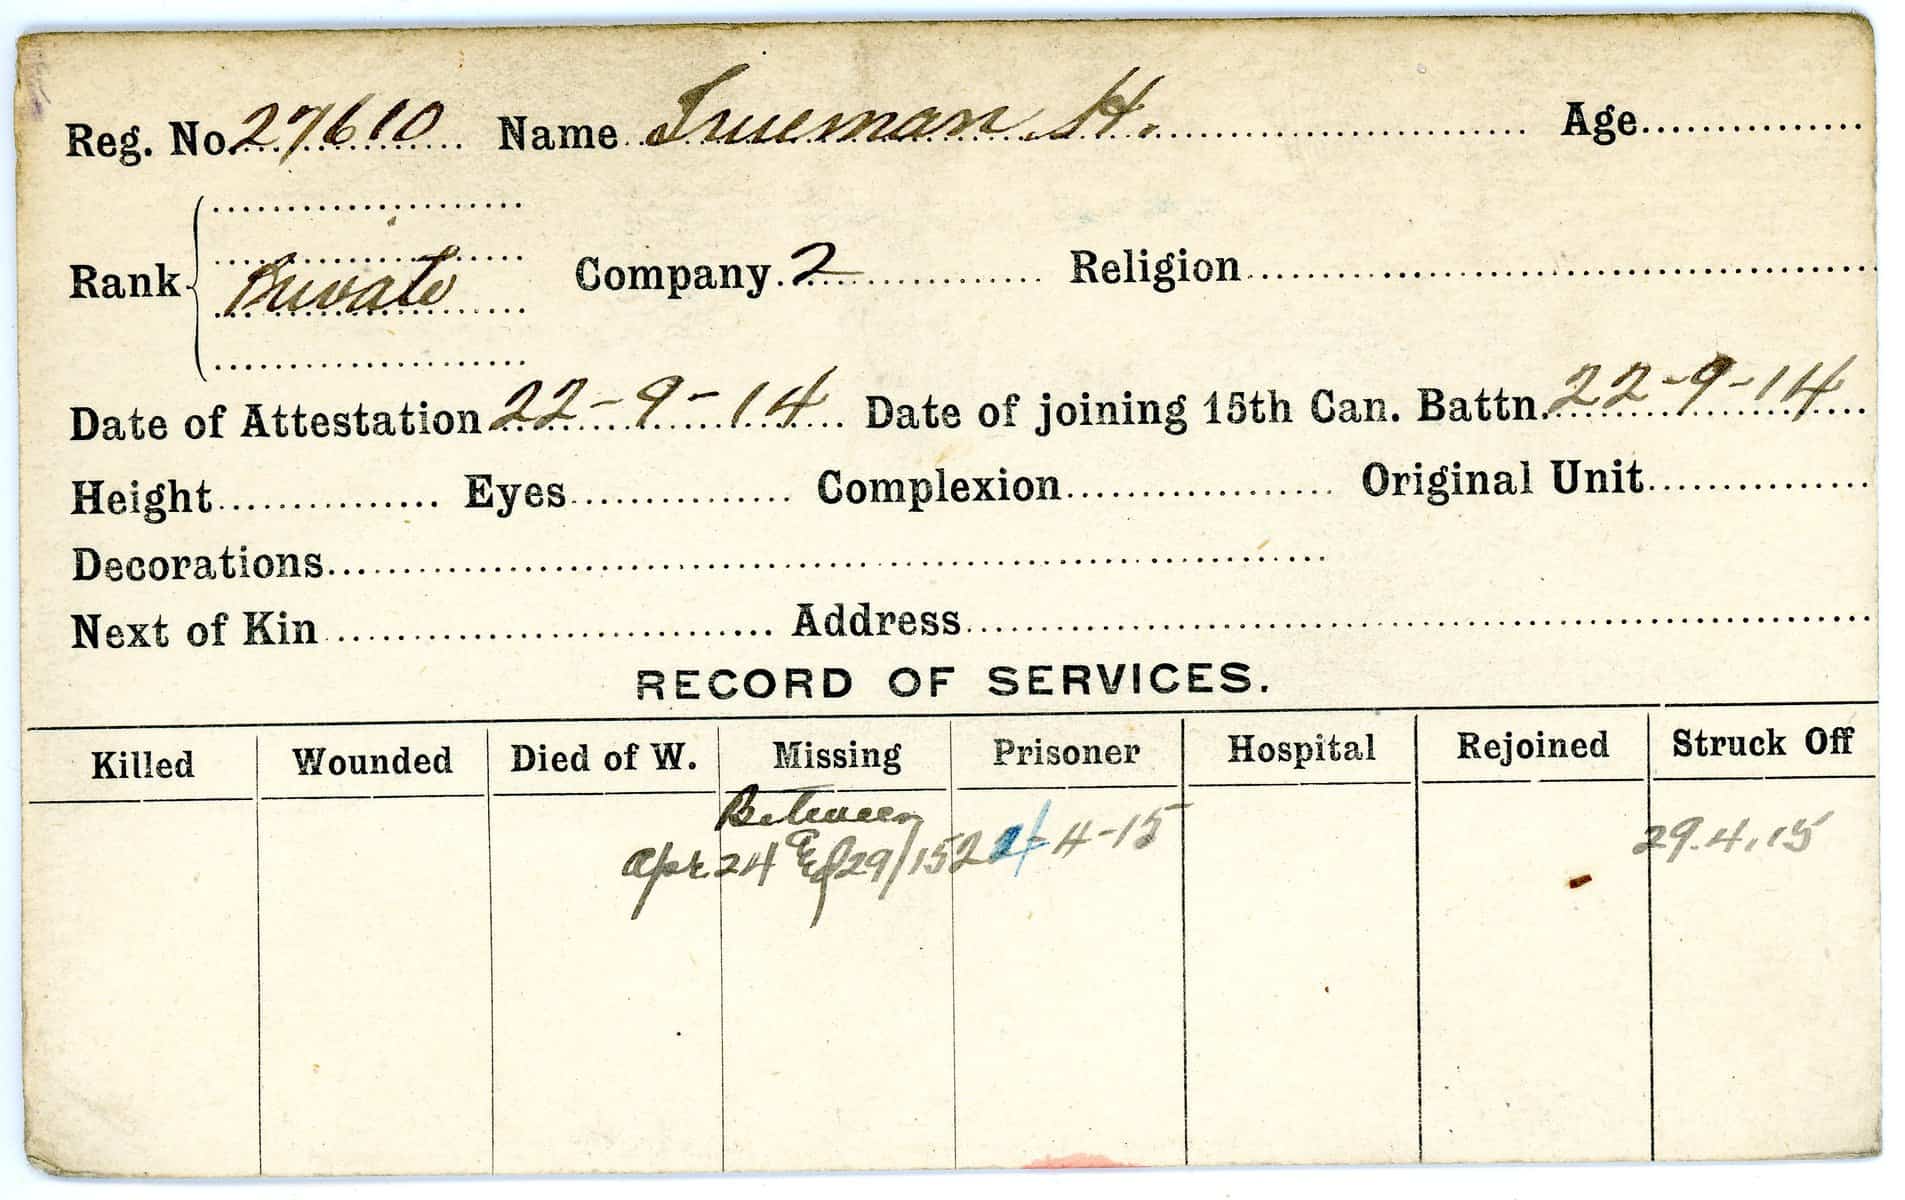 Reg. No. 27610 Name Trueman H. Age
Rank Private Company 2 Religion
Date of Attestation 22-9-14 Date of joining 15th Can. Battn. 22-9-14
Height Eyes Complexion Original Unit
Decorations
Next of Kin Address
RECORD OF SERVICES.
Killed Wounded Died of W. Missing Prisoner Hospital Rejoined Struck Off
Between
Apr 24 & 29/15 24-4-15 29.4.15